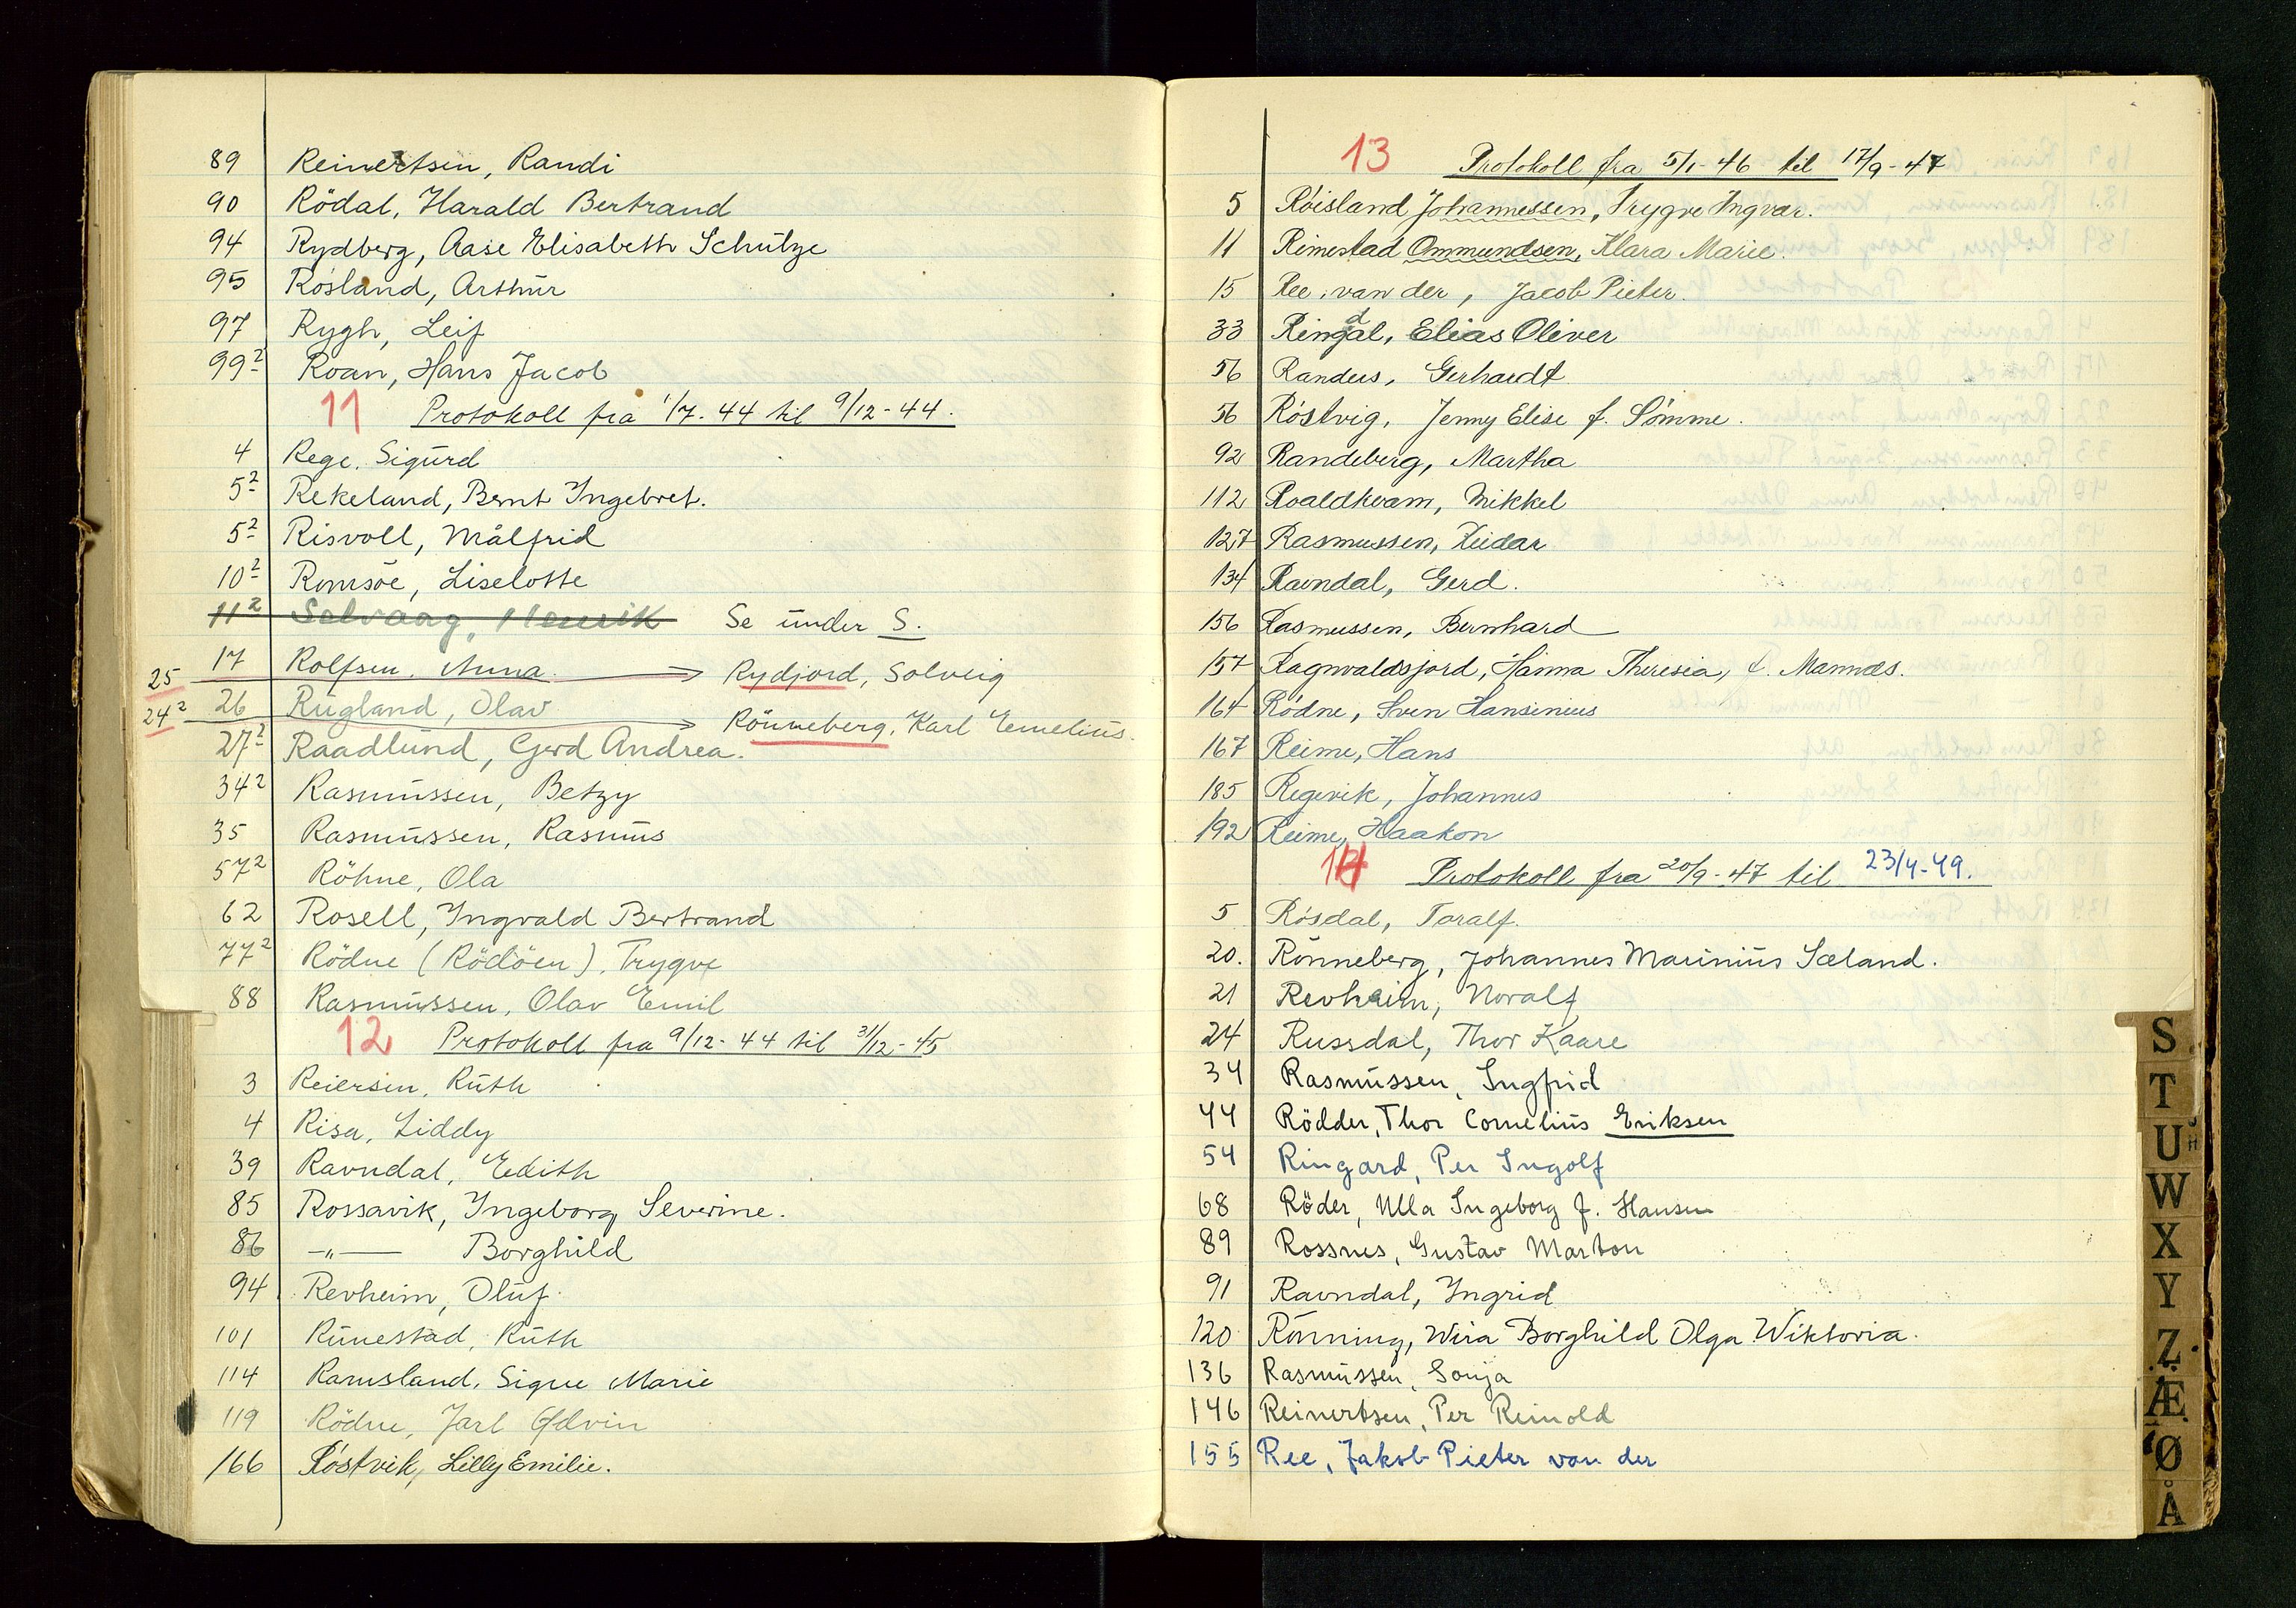 89 Reinertsen, Randi
90 Rödal, Harald Bertrand
94 Rydberg, Aase Elisabeth Schütze
95 Rósland, Arthur
97 Rygh, Leif
99² Roan, Hans Jacob
11 Protokoll fra 1/7-44 til 9/12-44.
4 Rege, Sigurd
5² Rekeland, Bernt Ingebret.
5² Risvoll, Målfrid
10² Romsöe, Liselotte
11² Selvaag, Henrik Se under S.
17 Rolfsen, Anna
25 Rydjord, Solveig
26 Rugland, Olav
24² Rönneberg, Karl Emelius.
27² Raadlund, Gerd Andrea.
34² Rasmussen, Betzy
35 Rasmussen, Rasmus
57² Röhne, Ola
62 Rosell, Ingvald Bertrand
77² Rödne (Rödöen), Trygve
88 Rasmussen, Olav Emil
12 Protokoll fra 9/12-44 til 31/12-45
3 Reiersen, Ruth
4 Risa, Liddy
39 Ravndal, Edith
85 Rossavik, Ingeborg Severine.
86 —"— Borghild
94 Revheim, Oluf
101 Runestad, Ruth
114 Ramsland, Signe Marie
119 Rödne, Jarl Edvin
166 Róstvik, Lilly Emilie.
13 Protokoll fra 5/1-46 til 17/9-47
5 Róisland Johannessen, Trygve Ingvar.
11 Rimestad Ommundsen, Klara Marie.
15 Ree, van der, Jacob Pieter.
33 Ringdal, Elias Oliver
56 Randers, Gerhardt
56 Róstvig, Jenny Elise f. Sömme.
92 Randeberg, Martha
112 Roaldkvam, Mikkel
127 Rasmussen, Reidar
134 Ravndal, Gerd.
156 Rasmussen, Bernhard
157 Ragnvaldsjord, Hanna Theresia, f. Mannes.
164 Ródne, Sven Hansinius
167 Reime, Hans
185 Regevik, Johannes
192 Reime, Haakon
14 Protokoll fra 20/9-47 til 23/4-49.
5 Rósdal, Toralf.
20. Rönneberg, Johannes Marinius Sæland.
21 Revheim, Noralf
24 Russdal, Thor Kaare
34 Rasmussen, Ingfrid
44 Rödder, Thor Cornelius Eriksen
54 Ringard, Per Ingolf
68 Röder, Ulla Ingeborg f. Hansen
89 Rossnes, Gustav Marton
91 Ravndal, Ingrid
120 Rönning, Wira Borghild Olga Wiktoria.
136 Rasmussen, Sonja
146 Reinertsen, Per Reinold
155 Ree, Jakob Pieter van der
S
T
U
W
X
Y
Z
Æ
Ø
Å